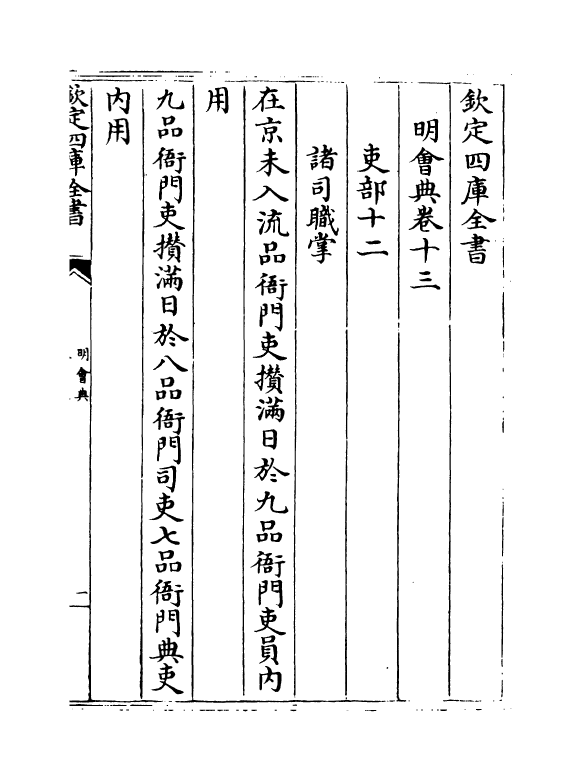 欽定四庫全書
明會典卷十三
吏部十二
諸司職掌
在京未入流品衙門吏攅滿日於九品衙門吏員內
用
九品衙門吏攅滿日於八品衙門司吏七品衙門典吏
內用
欽定四庫全書
明會典
二